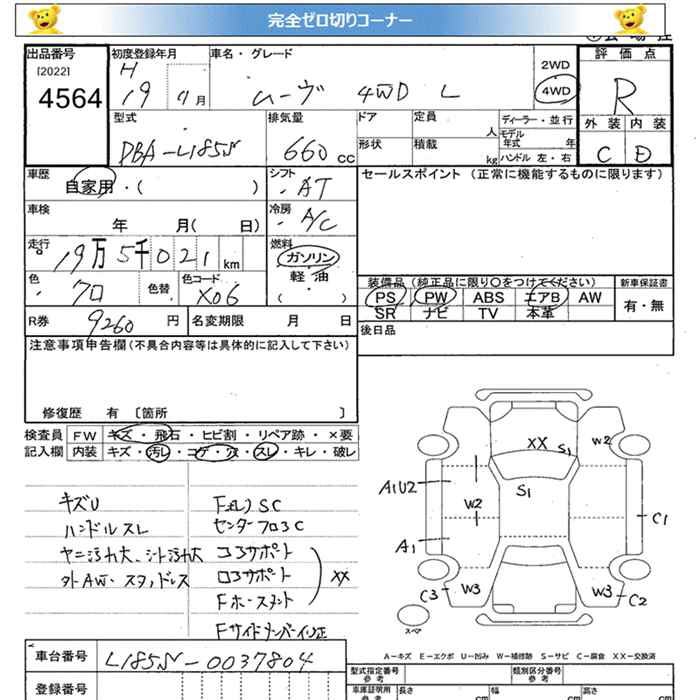 完全ゼロ切りコーナー
出品番号
[2022]
4564
初度登録年月
H 19 11月
車名・グレード
ムーヴ 4WD L
2WD
4WD
評価点
R
外装 内装
C D
型式
DBA-L185S
排気量
660 cc
ドア
形状
定員 人
積載 kg
ディーラー・並行
モデル年式 年
ハンドル 左・右
車歴
自家用・( )
シフト
AT
セールスポイント (正常に機能するものに限ります)
車検 年 月( 日)
冷房
A/C
走行
19万5千021 km
燃料
ガソリン
軽・油
( )
色
クロ
色替
色コード
X06
装備品 (純正品に限り〇をつけてください)
新車保証書
PS PW ABS エアB AW
SR ナビ TV 本革
有・無
R券 9260 円
名変期限 月 日
後日品
注意事項申告欄(不具合内容等は具体的に記入して下さい)
修復歴 有 〔箇所 〕
検査員記入欄
FW キズ・飛石・ヒビ割・リペア跡・×要
内装 キズ・汚レ・コゲ・穴・スレ・キレ・破レ
キズU
ハンドルスレ
ヤニ汚れ大、シート汚れ大
外AW、スタッドレス
センターフロアC
コアサポート
ロアサポート
XX
Fサイドメンバー修正
XX S1 W2
S1
A1U2
W2
C1
A1
C3 W3
W3 C2
スペア
A－キズ E－エクボ U－凹み W－補修跡 S－サビ C－腐食 XX－交換済
車台番号
L185S-0037804
登録番号
型式指定番号
参考
類別区分番号
参考
車庫証明用
参考
長さ cm
幅 cm
高さ cm